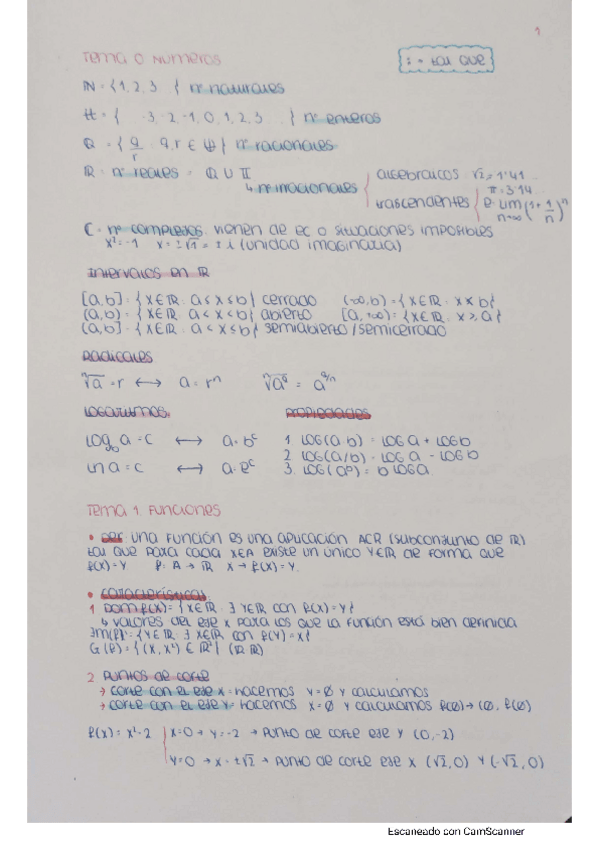 1.
Tema 0 Numeros
: → tal que
N = {1, 2, 3 } nº naturales
Z = { -3, -2, -1, 0, 1, 2, 3 } nº enteros
Q = { q/r : q, r ∈ } nº racionales
R = nº reales = Q U II
↳ nº irracionales
algebraicos √2 = 1'41
π = 3'14
trascendentes e = lim n→∞ (1 + 1/n)^n
C = nº complejos vienen de ec o situaciones imposibles
x² = -1 x = ±√-1 = ± i (unidad imaginaria)
Intervalos en R
[a,b] = {x∈R : a ≤ x ≤ b} cerrado (-∞,b) = {x∈R : x < b}
(a,b) = {x∈R : a < x < b} abierto [a,+∞) = {x∈R : x ≥ a}
(a,b] = {x∈R : a < x ≤ b} semiabierto/semicerrado
Radicales
ⁿ√a = r ⟷ a = rⁿ ⁿ√a^q = a^q/n
Logaritmos. Propiedades
log_b a = c ⟷ a = b^c 1 log(a·b) = log a + log b
2 log(a/b) = log a - log b
ln a = c ⟷ a = e^c 3. log(a^b) = b log a
Tema 1. Funciones
• Def una función es una aplicación ACR (subconjunto de R)
tal que para cada x∈A existe un único y∈R de forma que
f(x) = y f: A → R x → f(x) = y.
• Características.
1 Dom f(x) = {x∈R : ∃ y∈R con f(x) = y}
↳ valores del eje x para los que la función está bien definida
Im(f) = {y∈R : ∃ x∈R con f(y) = x}
G(f) = {(x, x²) ∈ R²} (R R)
2 Puntos de corte
→ corte con el eje x = hacemos y = 0 y calculamos
→ corte con el eje y = hacemos x = 0 y calculamos f(0) → (0, f(0))
f(x) = x² - 2 x = 0 → y = -2 → punto de corte eje y (0, -2)
y = 0 → x = ±√2 → punto de corte eje x (√2, 0) y (-√2, 0)
Escaneado con CamScanner